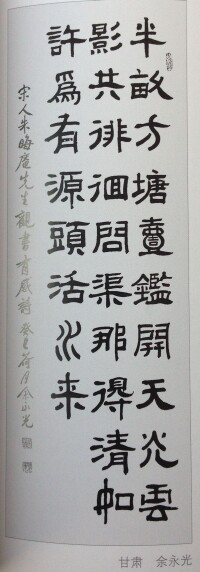 半畝方塘壹鑑開天光雲
影共徘徊問渠那得清如
許爲有源頭活水来
宋人朱晦庵先生觀書有感詩癸巳荷月余永光
甘肃 余永光